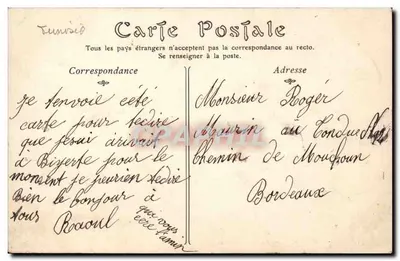 Tunisie
Carte Postale
Tous les pays étrangers n'acceptent pas la correspondance au recto.
Se renseigner à la poste.
Correspondance
Adresse
Je tenvoie cété
carte pour tédire
que jesui arivait
à Bizerte pour le
moment je peurien tédire
Bien le bonjour à
tous Raoul
que vous
Monsieur Rogér
Maurin au
Chemin de
Bordeaux